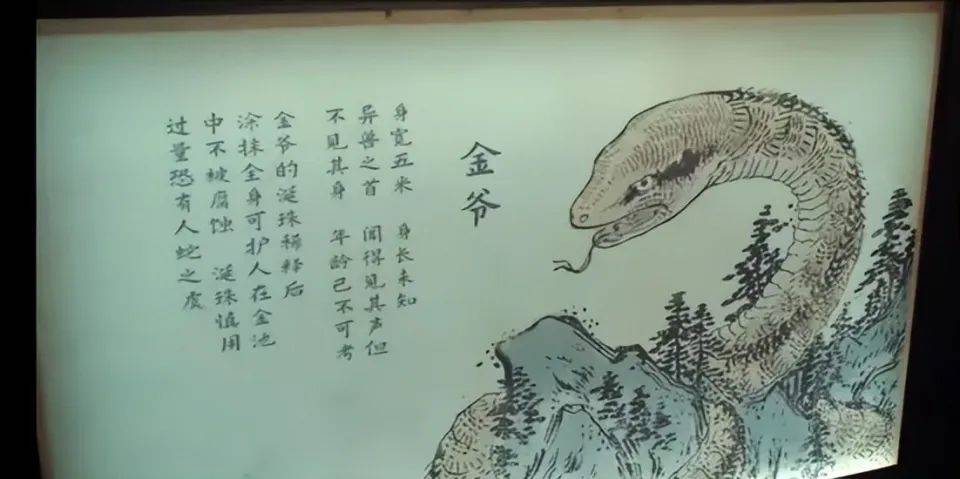 金爷
身宽五米 身长未知
异兽之首 闻得见其声但
不见其身 年龄已不可考
金爷的涎珠稀释后
涂抹全身可护人在金池
中不被腐蚀 涎珠慎用
过量恐有人蛇之虞